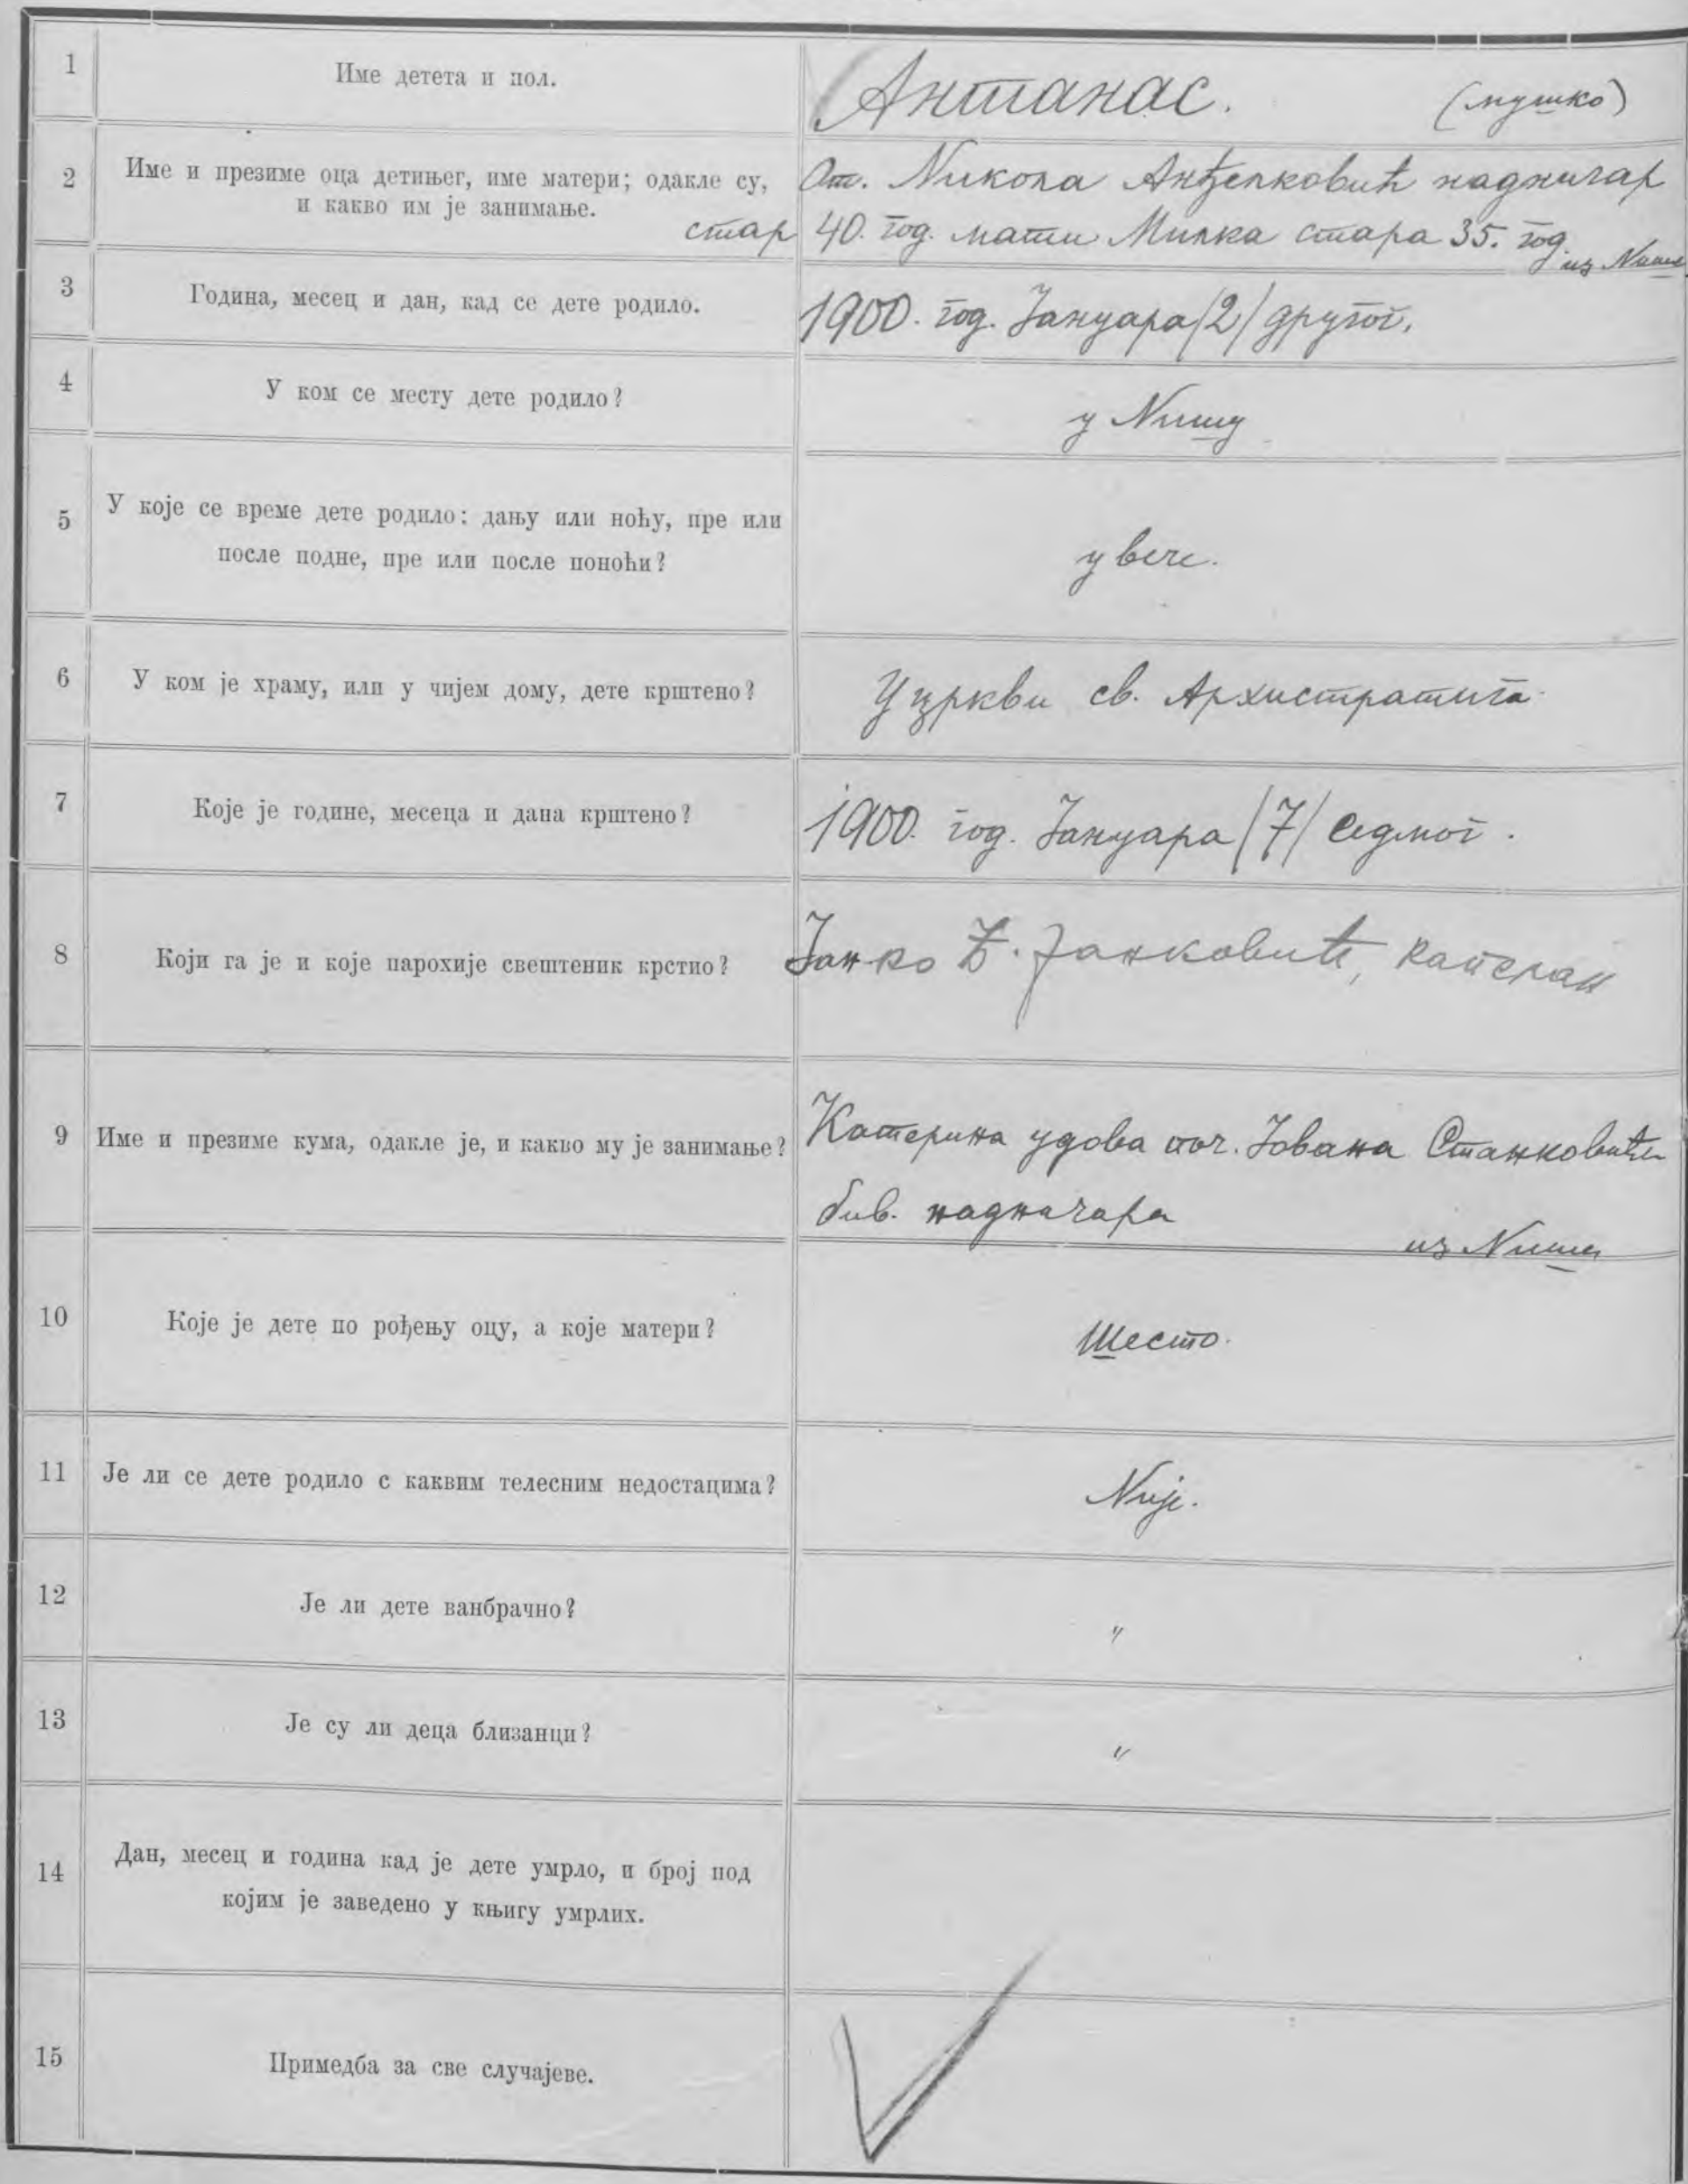 1 Име детета и пол. Антанас. (мушко)
2 Име и презиме оца детињег, име матери; одакле су, От. Никола Анђелковић надничар
и какво им је занимање. стар 40. год. мати Милка стара 35. год. из Ниша
3 Година, месец и дан, кад се дете родило. 1900. год. Јануара /2/ другог.
4 У ком се месту дете родило? у Нишу
5 У које се време дете родило: дању или ноћу, пре или
после подне, пре или после поноћи? у вече.
6 У ком је храму, или у чијем дому, дете крштено? У цркви св. Архистратига
7 Које је године, месеца и дана крштено? 1900. год. Јануара /7/ седмог.
8 Који га је и које парохије свештеник крстио? Јанко Ђ. Јанковић, капелан
9 Име и презиме кума, одакле је, и какво му је занимање? Катерина удова поч. Јована Станковића
бив. надничара из Ниша
10 Које је дете по рођењу оцу, а које матери? Шесто.
11 Је ли се дете родило с каквим телесним недостацима? Није.
12 Је ли дете ванбрачно? "
13 Је су ли деца близанци? "
14 Дан, месец и година кад је дете умрло, и број под
којим је заведено у књигу умрлих.
15 Примедба за све случајеве.